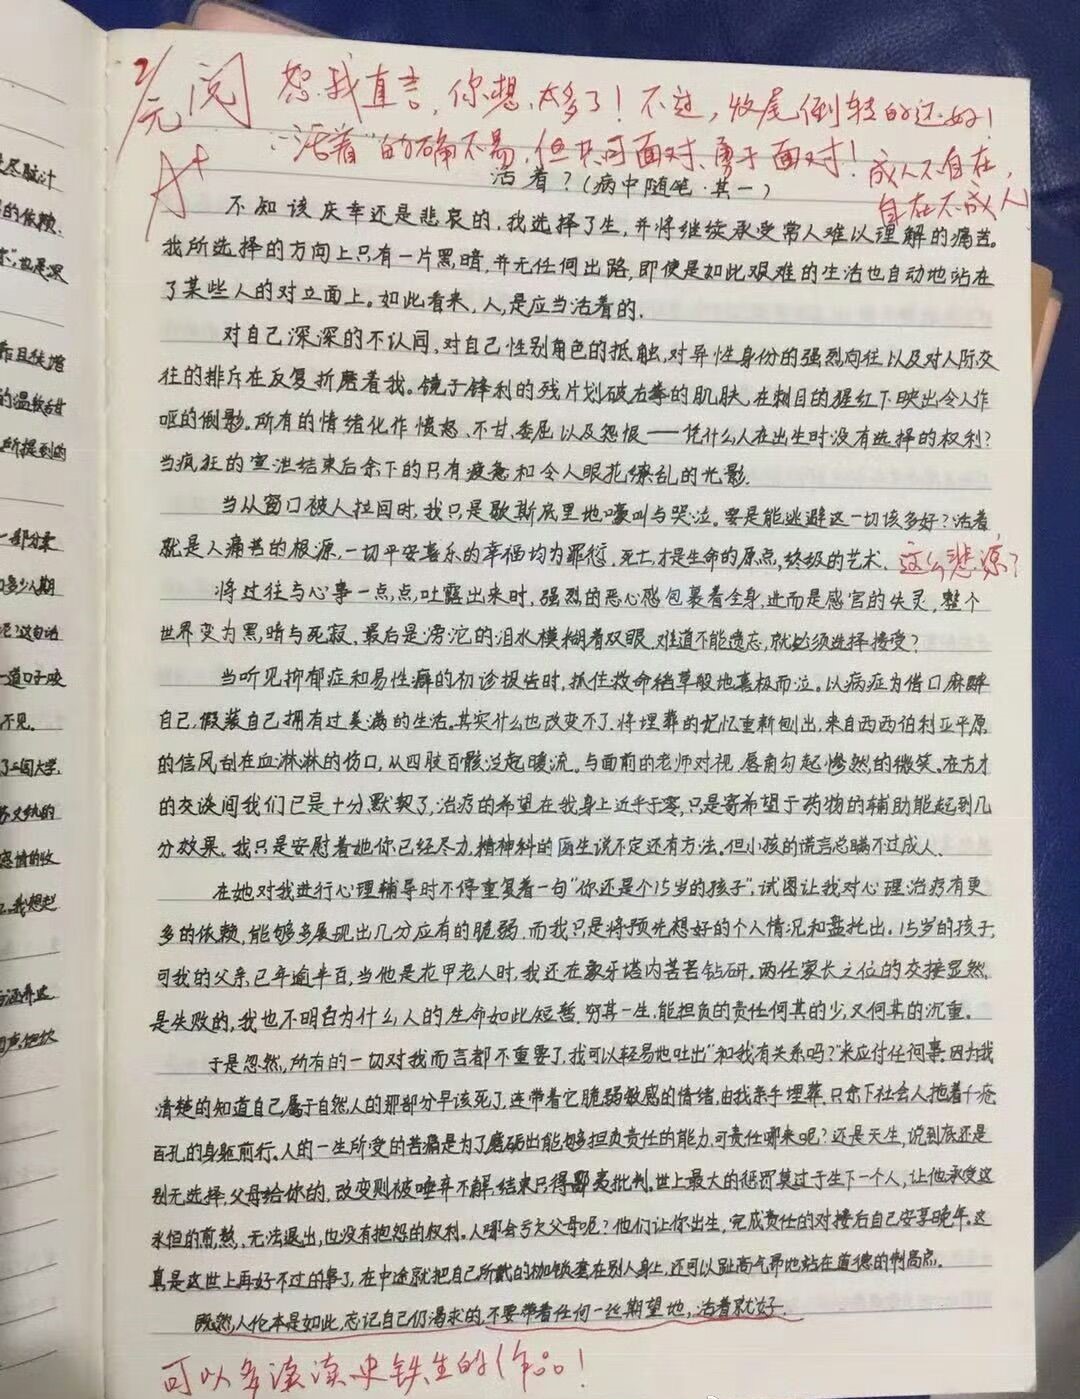 2/元 阅 恕我直言，你想太多了！不过，收尾倒转的还好！
A+ "活着"的确不易，但共同面对、勇于面对！成人不自在，
自在不成人
活着？(病中随笔·其一)
不知该庆幸还是悲哀的，我选择了生，并将继续承受常人难以理解的痛苦。
我所选择的方向上只有一片黑暗，并无任何出路，即使是如此艰难的生活也自动地站在
了某些人的对立面上。如此看来，人，是应当活着的．
对自己深深的不认同，对自己性别角色的抵触，对异性身份的强烈向往以及对人际交
往的排斥在反复折磨着我。镜子锋利的残片划破右拳的肌肤，在刺目的猩红下映出令人作
呕的倒影。所有的情绪化作愤怒、不甘、委屈以及怨恨——凭什么人在出生时没有选择的权利？
当疯狂的宣泄结束后余下的只有疲惫和令人眼花缭乱的光影．
当从窗口被人拉回时，我只是歇斯底里地嚎叫与哭泣。要是能逃避这一切该多好？活着
就是人痛苦的根源，一切平安喜乐的幸福均为罪愆，死亡才是生命的原点，终级的艺术． 这么悲凉？
将过往与心事一点点吐露出来时，强烈的恶心感包裹着全身，进而是感官的失灵，整个
世界变为黑暗与死寂，最后是滂沱的泪水模糊着双眼．难道不能遗忘，就必须选择接受？
当听见抑郁症和易性癖的初诊报告时，抓住救命稻草般地喜极而泣。以病症为借口麻醉
自己，假装自己拥有过美满的生活。其实什么也改变不了，将埋葬的记忆重新刨出，来自西西伯利亚平原
的信风刮在血淋淋的伤口，从四肢百骸泛起暖流。与面前的老师对视，唇角勾起惨然的微笑。在方才
的交谈间我们已是十分默契了，治疗的希望在我身上近乎于零，只是寄希望于药物的辅助能起到几
分效果。我只是安慰着她你已经尽力，精神科的医生说不定还有方法。但小孩的谎言总瞒不过成人．
在她对我进行心理辅导时不停重复着一句"你还是个15岁的孩子"．试图让我对心理治疗有更
多的依赖，能够多展现出几分应有的脆弱．而我只是将预先想好的个人情况和盘托出．15岁的孩子，
可我的父亲已年逾半百，当他是花甲老人时，我还在象牙塔内苦苦钻研。两任家长之位的交接显然
是失败的，我也不明白为什么人的生命如此短暂，穷其一生，能担负的责任何其的少，又何其的沉重。
于是忽然，所有的一切对我而言都不重要了，我可以轻易地吐出"和我有关系吗？"来应付任何事．因为我
清楚的知道自己属于自然人的那部分早该死了，连带着它脆弱敏感的情绪，由我亲手埋葬．只余下社会人拖着千疮
百孔的身躯前行。人的一生所受的苦痛是为了磨砺出能够担负责任的能力，可责任哪来呢？还是天生，说到底还是
别无选择．父母给你的，改变则被唾弃不解，结束只得鄙夷批判。世上最大的惩罚莫过于生下一个人，让他承受这
永恒的煎熬，无法退出，也没有抱怨的权利。人哪会亏欠父母呢？他们让你出生，完成责任的对接后自己安享晚年。这
真是这世上再好不过的事了，在中途就把自己所戴的枷锁套在别人身上，还可以趾高气昂地站在道德的制高点．
既然人伦本是如此，忘记自己仍渴求的，不要带着任何一丝期望地，活着就好．
可以多读读史铁生的作品！